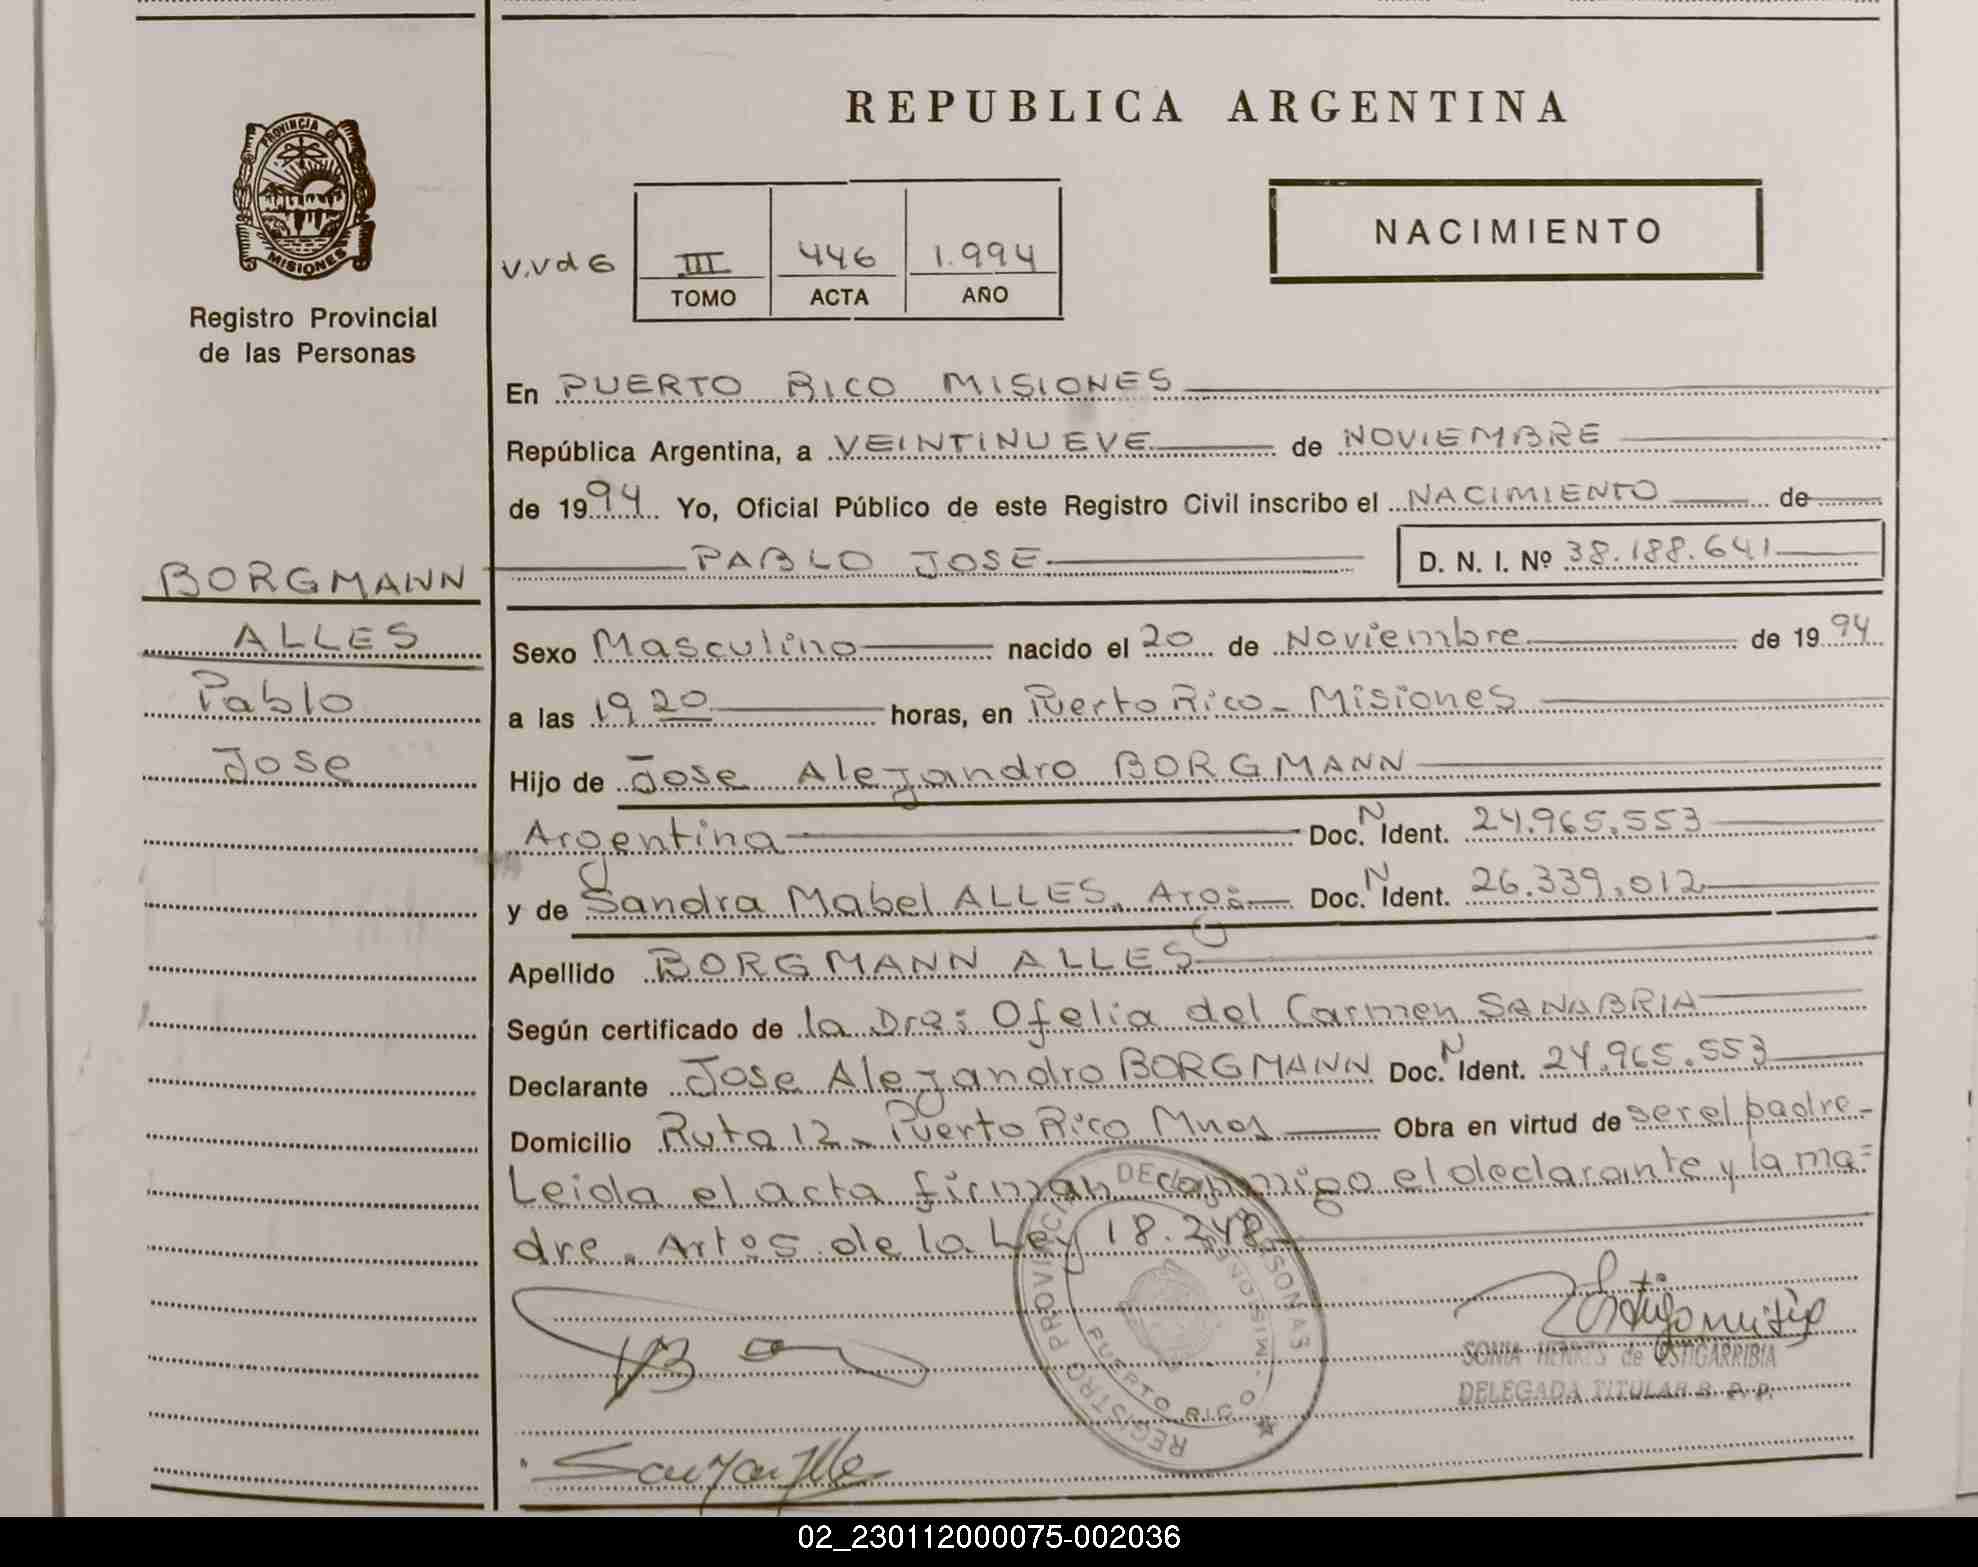 REPUBLICA ARGENTINA
PROVINCIA DE
MISIONES
Registro Provincial
de las Personas
NACIMIENTO
V.Vd6 III 446 1.994
TOMO ACTA AÑO
En PUERTO RICO MISIONES
República Argentina, a VEINTINUEVE de NOVIEMBRE
de 1994 Yo, Oficial Público de este Registro Civil inscribo el NACIMIENTO de
PABLO JOSE D. N. I. Nº 38.188.641
BORGMANN
ALLES
Pablo
Jose
Sexo Masculino nacido el 20 de Noviembre de 1994
a las 19 20 horas, en Puerto Rico - Misiones
Hijo de Jose Alejandro BORGMANN
Argentina Doc. N Ident. 24.965.553
y de Sandra Mabel ALLES, Arg: Doc. N Ident. 26.339.012
Apellido BORGMANN ALLES
Según certificado de la Dra: Ofelia del Carmen SANABRIA
Declarante Jose Alejandro BORGMANN Doc. N Ident. 24.965.553
Domicilio Ruta 12 - Puerto Rico Mnes Obra en virtud de ser el padre -
Leida el acta firman conmigo el declarante y la ma=
dre. Artos de la Ley 18.248-
REGISTRO PROVINCIAL DE LAS PERSONAS
PUERTO RICO - MISIONES
SONIA HENNES de ESTIGARRIBIA
DELEGADA TITULAR R. P. P.
02_230112000075-002036